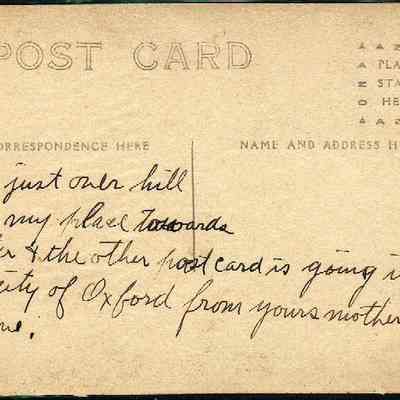 POST CARD
PLA
STA
HE
ORRESPONDENCE HERE
NAME AND ADDRESS H
just over hill
my place towards
er & the other post card is going i
city of Oxford from yours mother
me.